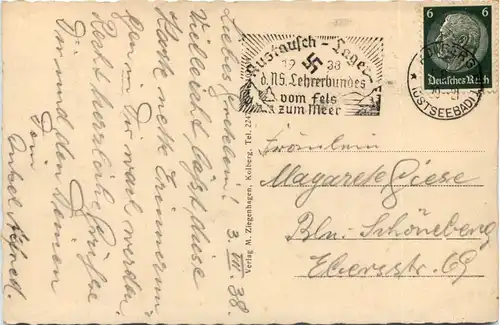 Liebes Gretelein!
Vielleicht läßt diese
Karte nette Erinnerun
gen in Dir wach werden.
Recht herzliche Grüße
Dir und den Deinen
Dein
Onkel Alfred.
3. VII 38.
Verlag M. Ziegenhagen, Kolberg, Tel. 224
Austausch-Lager
1938
d. NS. Lehrerbundes
vom Fels
zum Meer
6 6
Deutsches Reich
(OSTSEEBAD)
Fräulein
Magarete Giese
Bln. Schöneberg
Ebersstr. 69